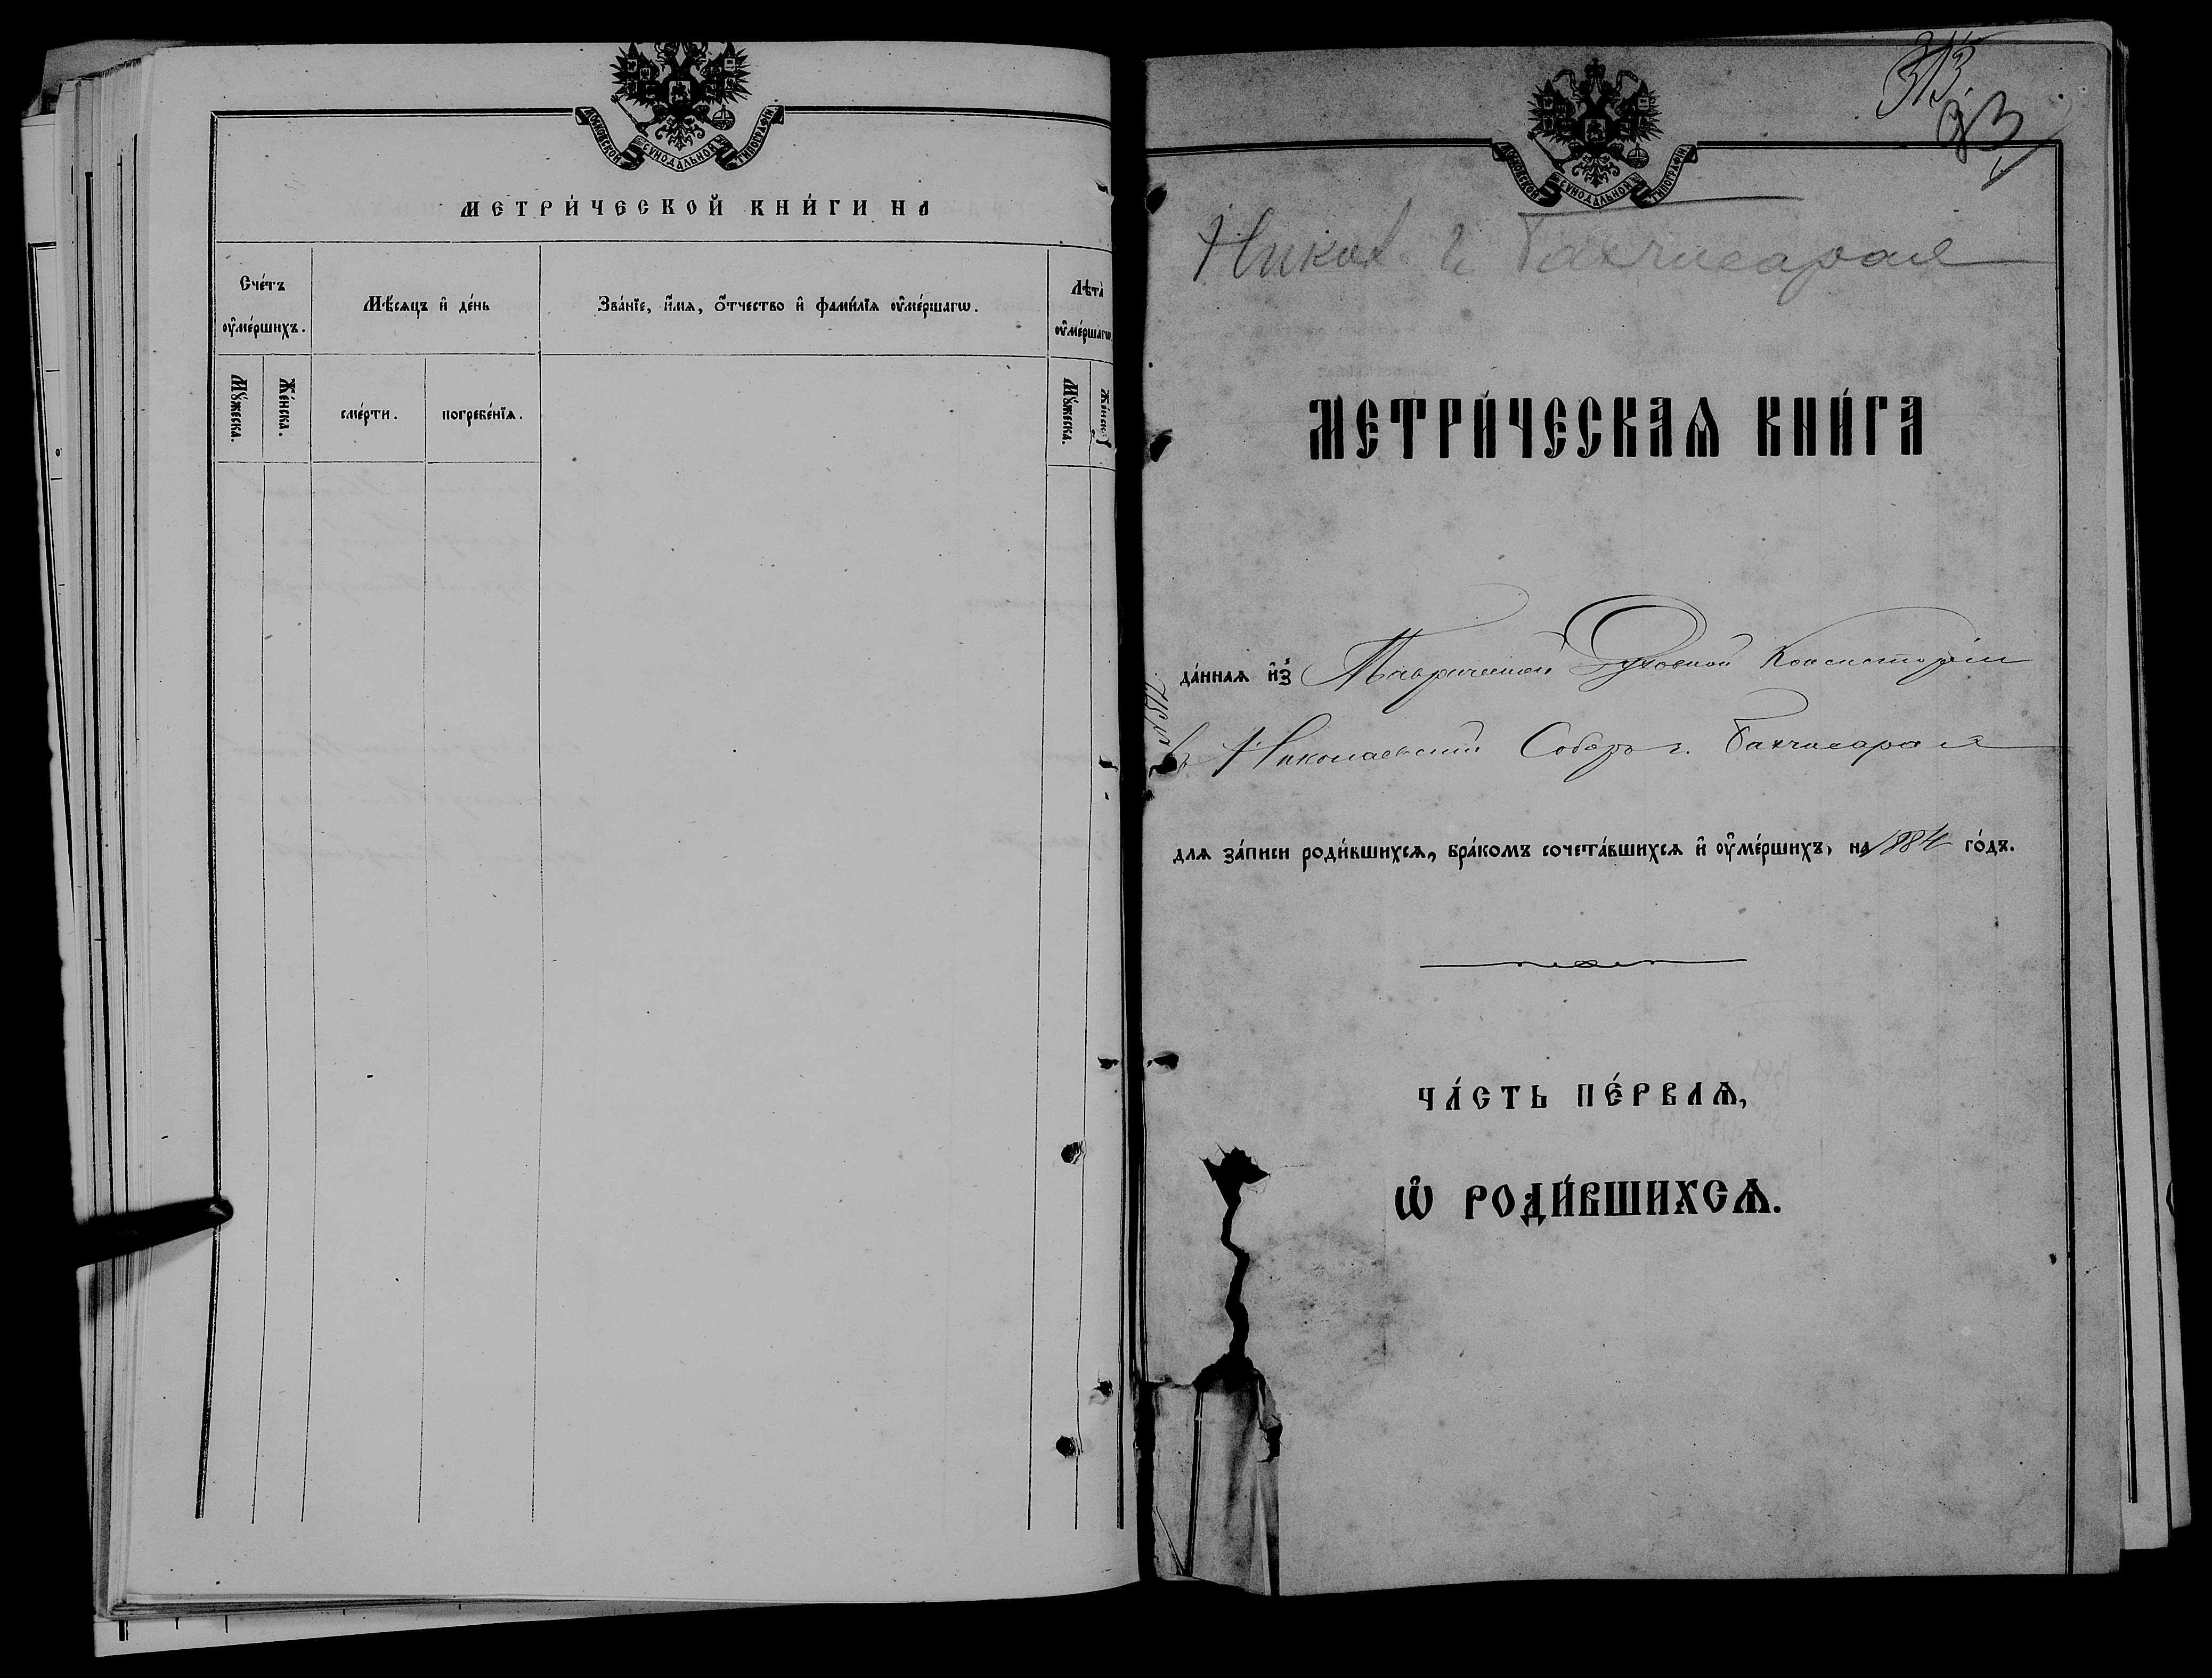 МОСКОВСКОЙ СѴНОДАЛЬНОЙ ТИПОГРАФІИ
МЕТРИ́ЧЕСКОЙ КНИ́ГИ НА
Сче́тъ ᲂу҆ме́ршихъ.
Мѣ́сяцъ и҆ де́нь
Зва́нїе, и҆́мѧ, ѻ҆́тчество и҆ фами́лїѧ ᲂу҆ме́ршагѡ.
Лѣта̀ ᲂу҆ме́ршагѡ
Мꙋ́жеска.
Же́нска.
сме́рти.
погребе́нїѧ.
Мꙋ́жеска.
Же́нска
313.
93
МОСКОВСКОЙ СѴНОДАЛЬНОЙ ТИПОГРАФІИ
Никол г. Бахчисарая
МЕТРИ́ЧЕСКАѦ КНИ́ГА
да́ннаѧ и҆з̾ Таврической Духовной Консисторіи
въ Николаевскій Соборъ г. Бахчисарая
для за́писи роди́вшихсѧ, бра́комъ сочета́вшихсѧ и҆ ᲂу҆ме́ршихъ, на 1884 го́дъ.
ЧА́СТЬ ПЕ́РВАѦ,
Ѡ҆ РОДИ́ВШИХСѦ.